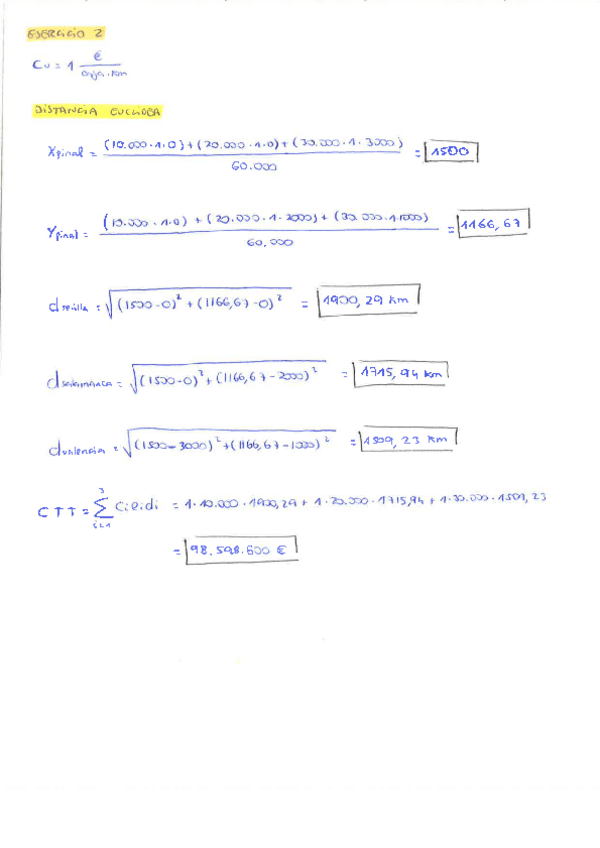 EJERCICIO 2
Cu = 1 € / caja·km
DISTANCIA EUCLIDEA
Xfinal = (10.000·1·0)+(20.000·1·0)+(30.000·1·3000) / 60.000 = 1500
Yfinal = (10.000·1·0)+(20.000·1·2000)+(30.000·1·1000) / 60.000 = 1166,67
dsevilla = √(1500-0)²+(1166,67-0)² = 1900,29 km
dsalamanca = √(1500-0)²+(1166,67-2000)² = 1715,94 km
dvalencia = √(1500-3000)²+(1166,67-1000)² = 1509,23 km
CTT = 3∑i=1 Ci·ei·di = 1·10.000·1900,29 + 1·20.000·1715,94 + 1·30.000·1509,23
= 98.598.600 €